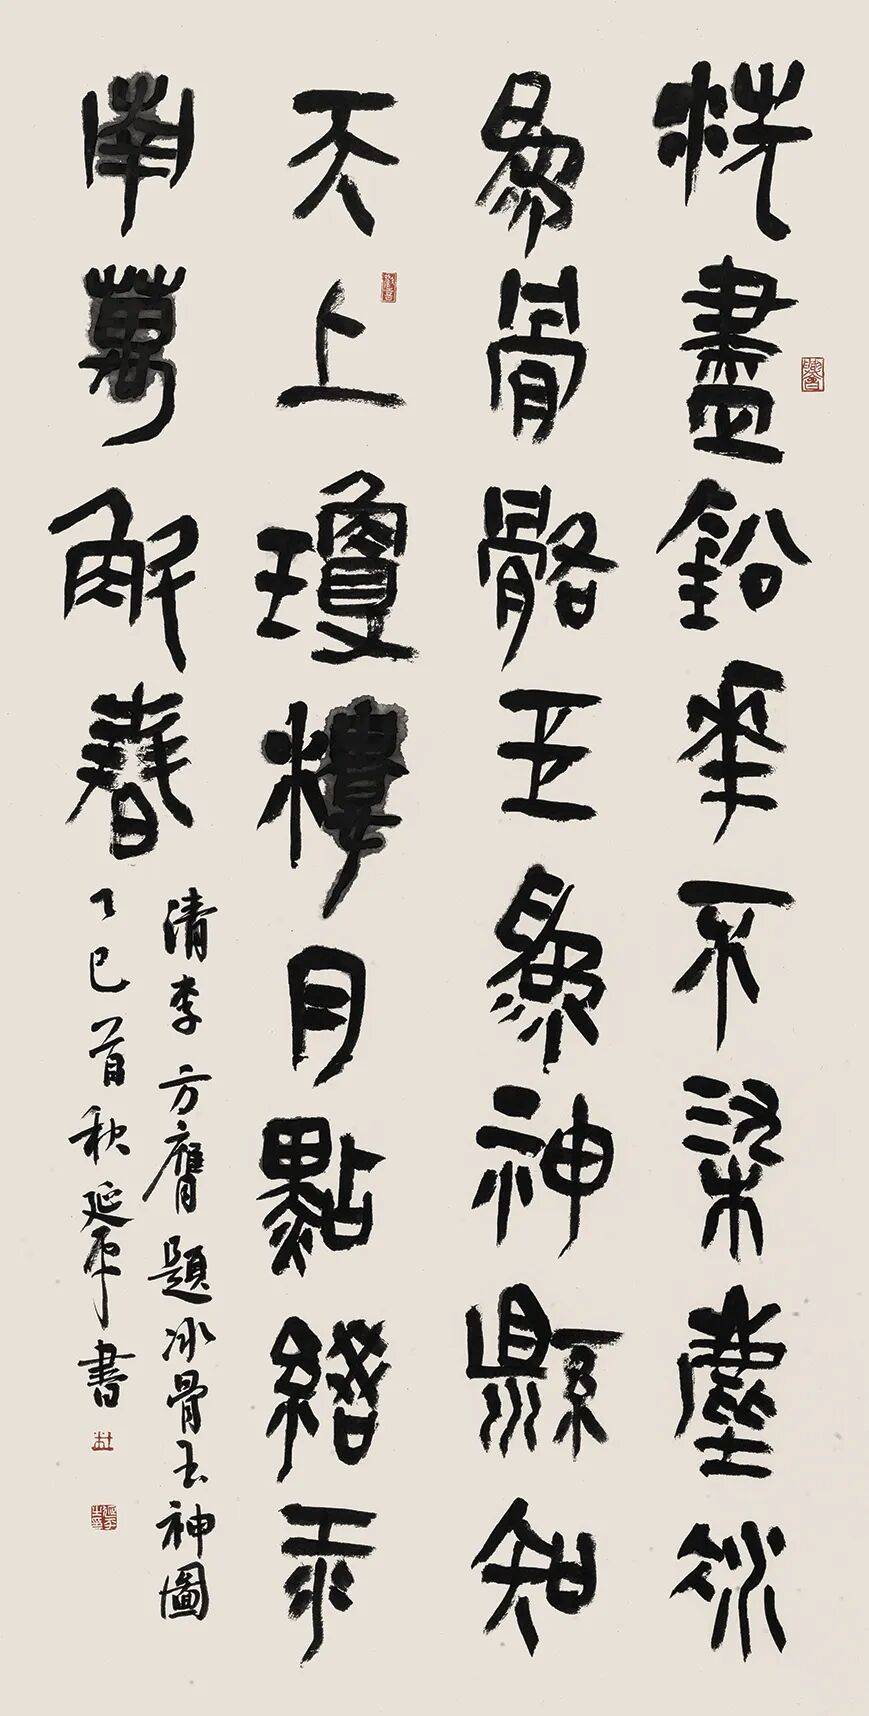 洗盡鉛華不染塵冰
為骨骼玉為神縣知
天上瓊樓月點綴江
南萬斛春
清李方膺題冰骨玉神圖
乙巳首秋延平書
杜